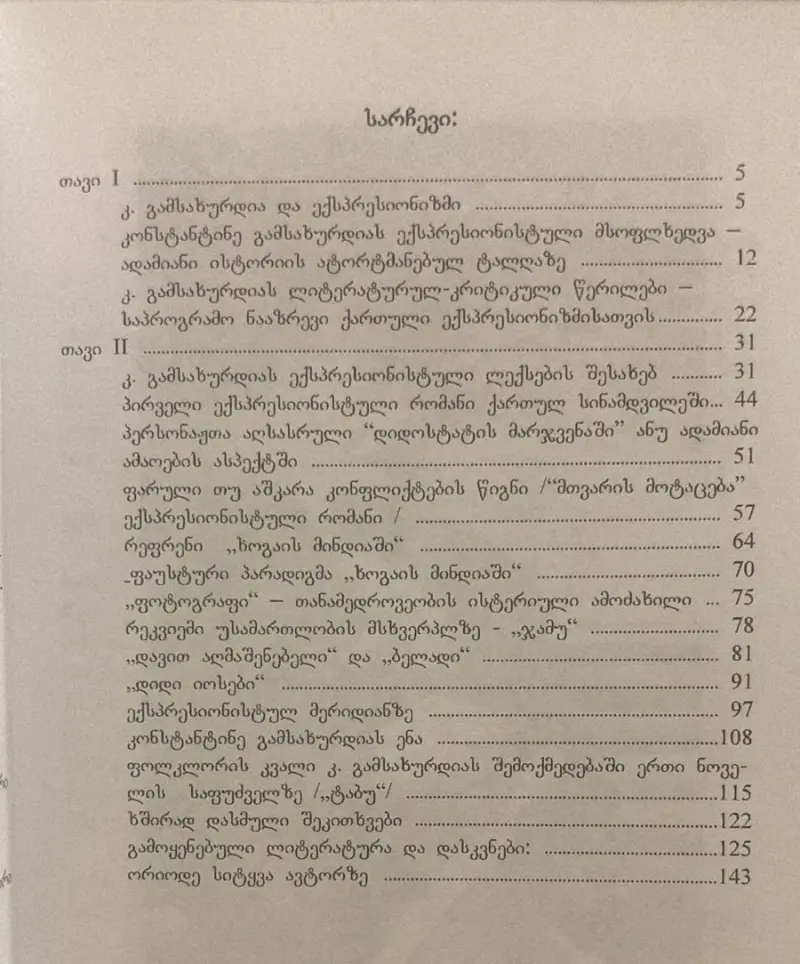 სარჩევი:
თავი I ........................................................ 5
კ. გამსახურდია და ექსპრესიონიზმი ........................ 5
კონსტანტინე გამსახურდიას ექსპრესიონისტული მსოფლხედვა –
ადამიანი ისტორიის ატორტმანებულ ტალღაზე .............. 12
კ. გამსახურდიას ლიტერატურულ-კრიტიკული წერილები –
საპროგრამო ნააზრევი ქართული ექსპრესიონიზმისათვის ............. 22
თავი II ........................................................ 31
კ. გამსახურდიას ექსპრესიონისტული ლექსების შესახებ .......... 31
პირველი ექსპრესიონისტული რომანი ქართულ სინამდვილეში... 44
პერსონაჟთა აღსასრული “დიდოსტატის მარჯვენაში” ანუ ადამიანი
ამაოების ასპექტში ........................................ 51
ფარული თუ აშკარა კონფლიქტების წიგნი /“მთვარის მოტაცება”
ექსპრესიონისტული რომანი / ................................ 57
რეფრენი „ხოგაის მინდიაში“ ................................ 64
_ფაუსტური პარადიგმა „ხოგაის მინდიაში“ .................... 70
„ფოტოგრაფი“ – თანამედროვეობის ისტერიული ამოძახილი ... 75
რეკვიემი უსამართლობის მსხვერპლზე - „ჯამუ“ .............. 78
„დავით აღმაშენებელი“ და „ბელადი“ ........................ 81
„დიდი იოსები“ ............................................ 91
ექსპრესიონისტულ მერიდიანზე .............................. 97
კონსტანტინე გამსახურდიას ენა ..............................108
ფოლკლორის კვალი კ. გამსახურდიას შემოქმედებაში ერთი ნოვე-
ლის საფუძველზე /„ტაბუ“/ ..................................115
ხშირად დასმული შეკითხვები ................................122
გამოყენებული ლიტერატურა და დასკვნები: ....................125
ორიოდე სიტყვა ავტორზე ....................................143